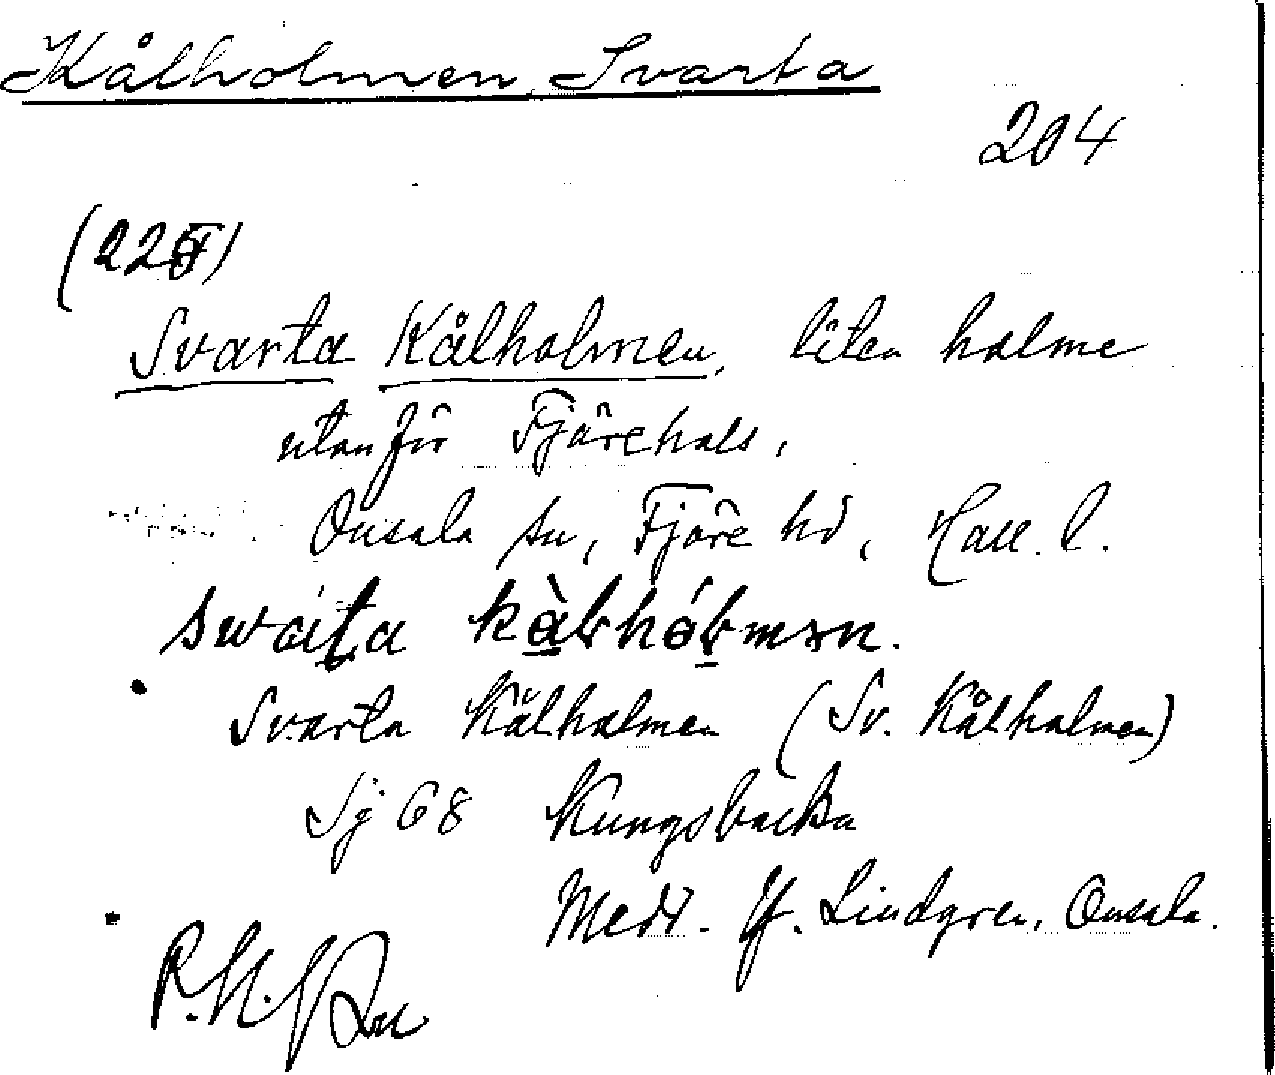 Kålholmen, Svarta
204
(22
Svarta Kålholmen, liten holme
utanför Fjärehals,
Onsala sn, Fjäre hd, Hall. l.
Svarta Kålholmen (Sv. Kålholmen)
Sj 68 Kungsbacka
Medd. Lindgren, Onsala.